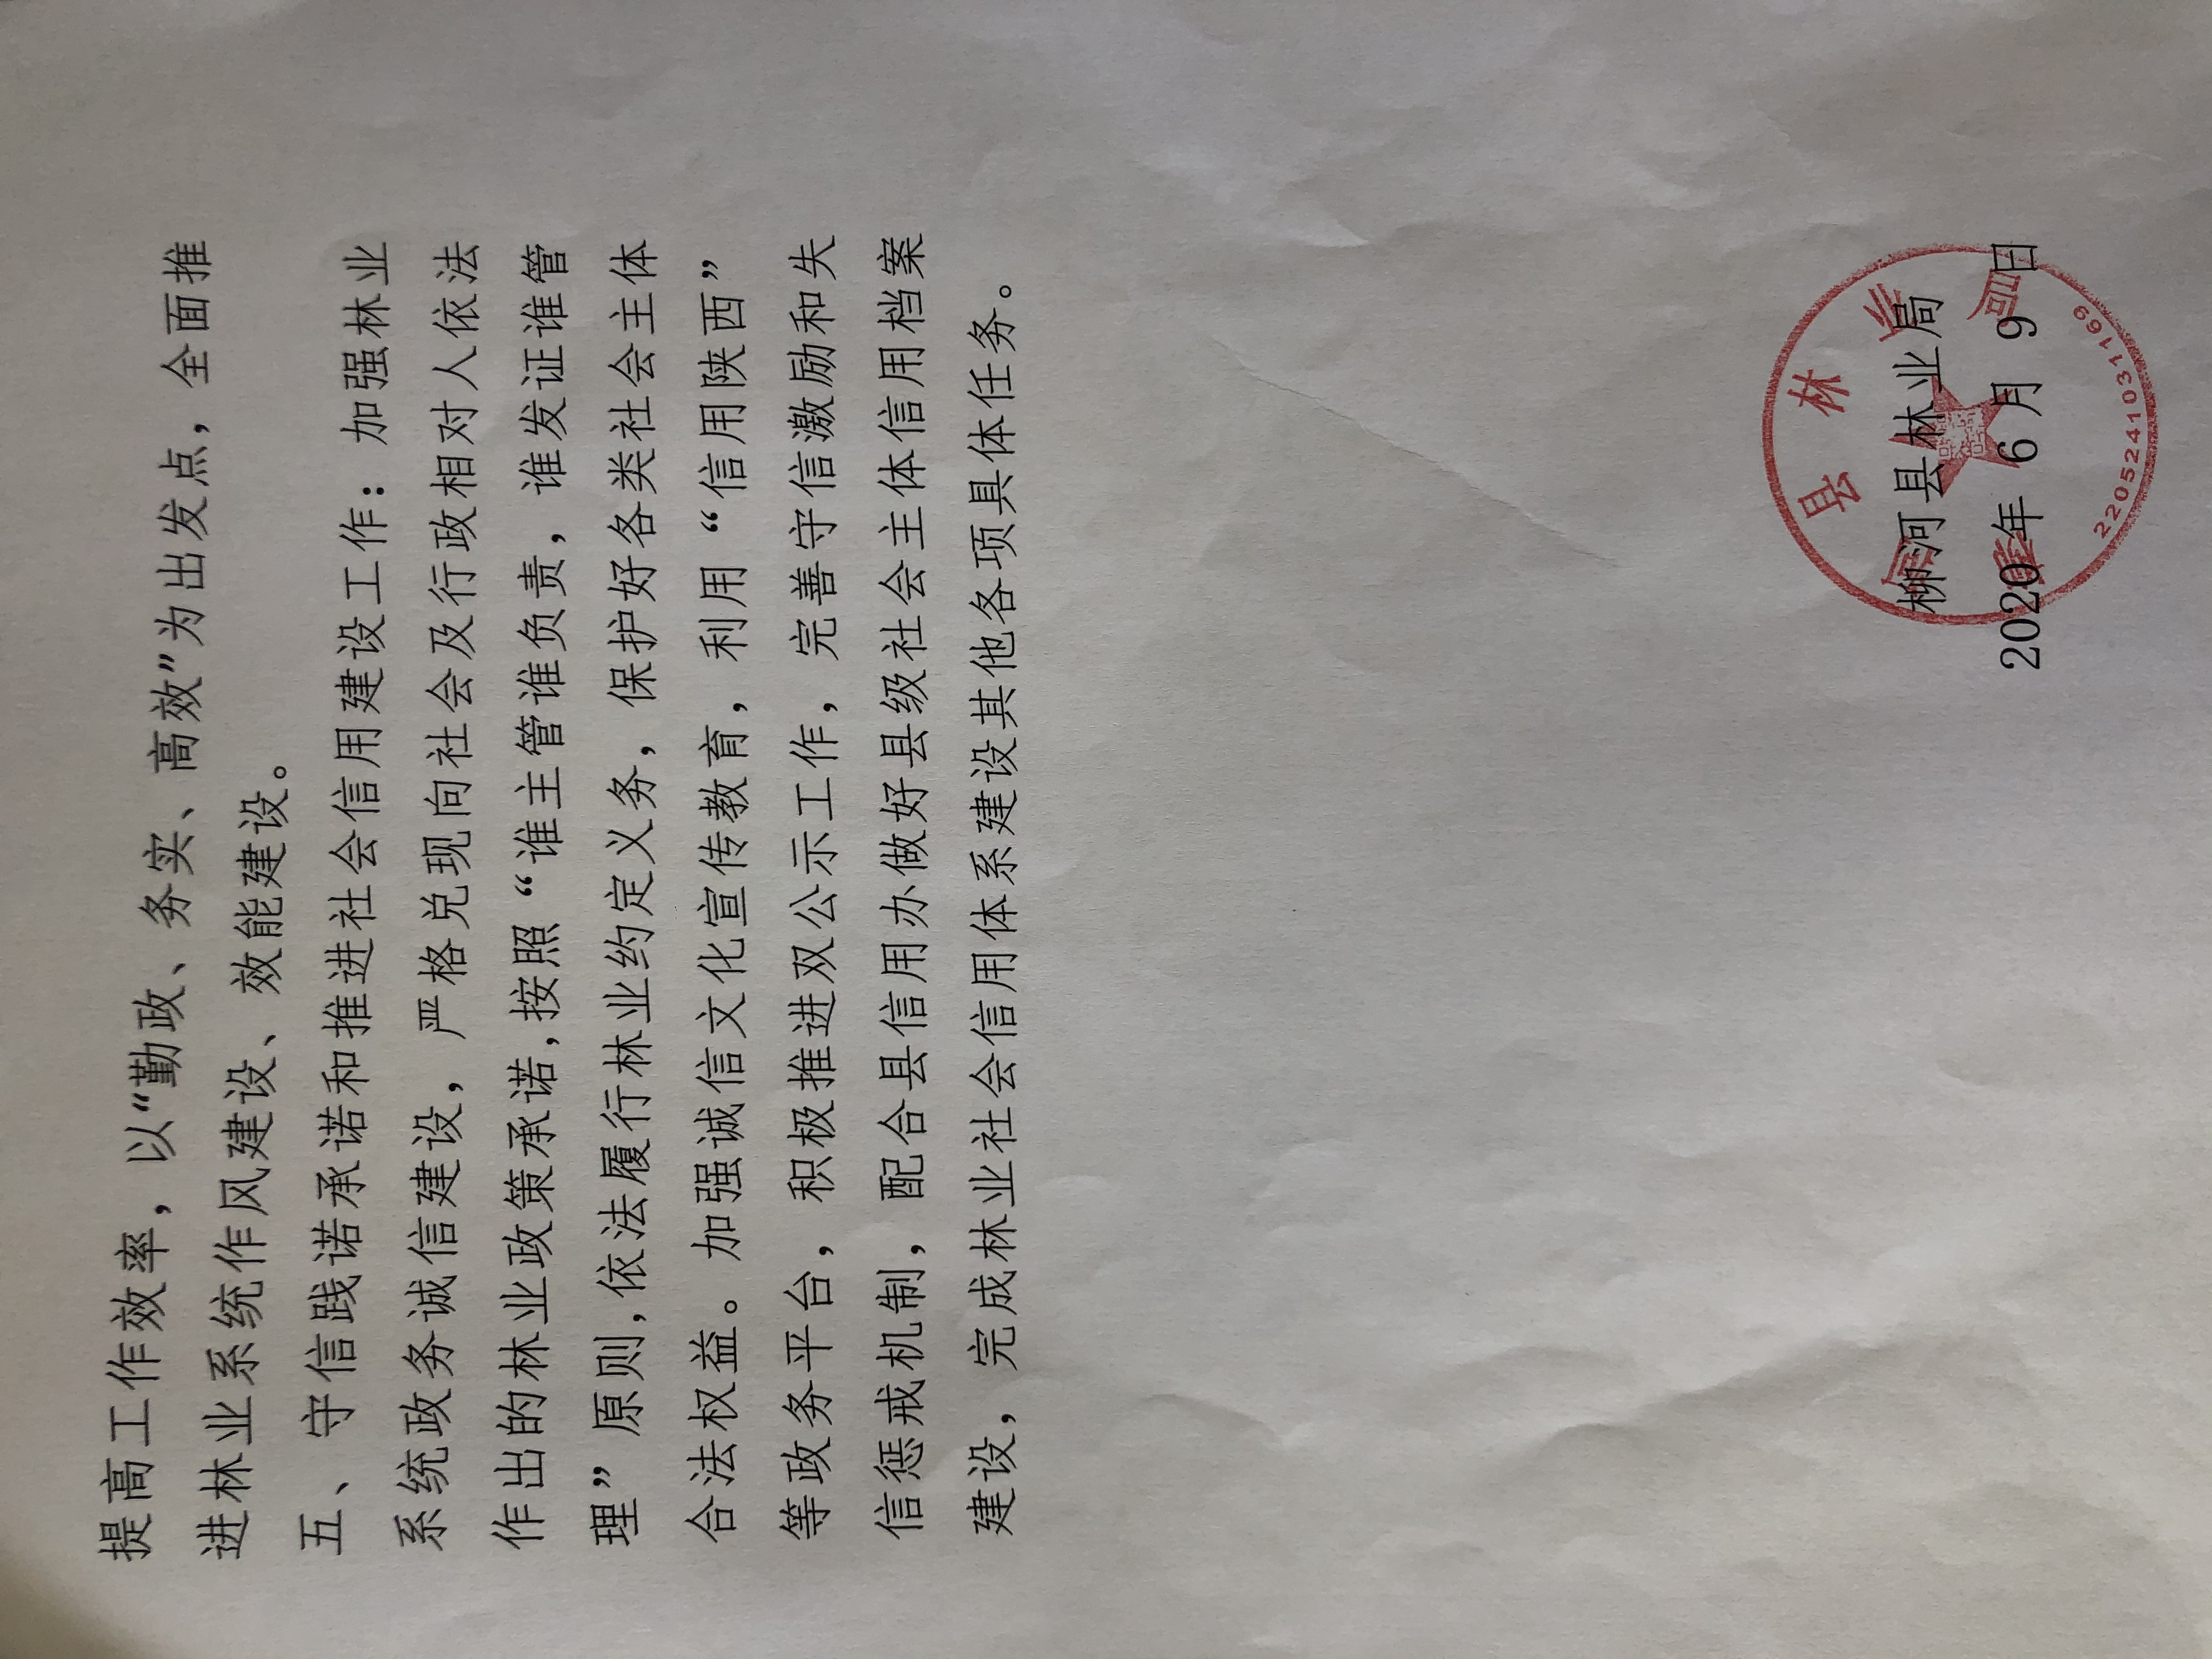 提高工作效率，以“勤政、务实、高效”为出发点，全面推
进林业系统作风建设、效能建设。
五、守信践诺承诺和推进社会信用建设工作：加强林业
系统政务诚信建设，严格兑现向社会及行政相对人依法
作出的林业政策承诺,按照“谁主管谁负责，谁发证谁管
理”原则,依法履行林业约定义务，保护好各类社会主体
合法权益。加强诚信文化宣传教育，利用“信用陕西”
等政务平台，积极推进双公示工作，完善守信激励和失
信惩戒机制，配合县信用办做好县级社会主体信用档案
建设，完成林业社会信用体系建设其他各项具体任务。
柳河县林业局
2020年 6 月 9 日
县林业局
2205241031169